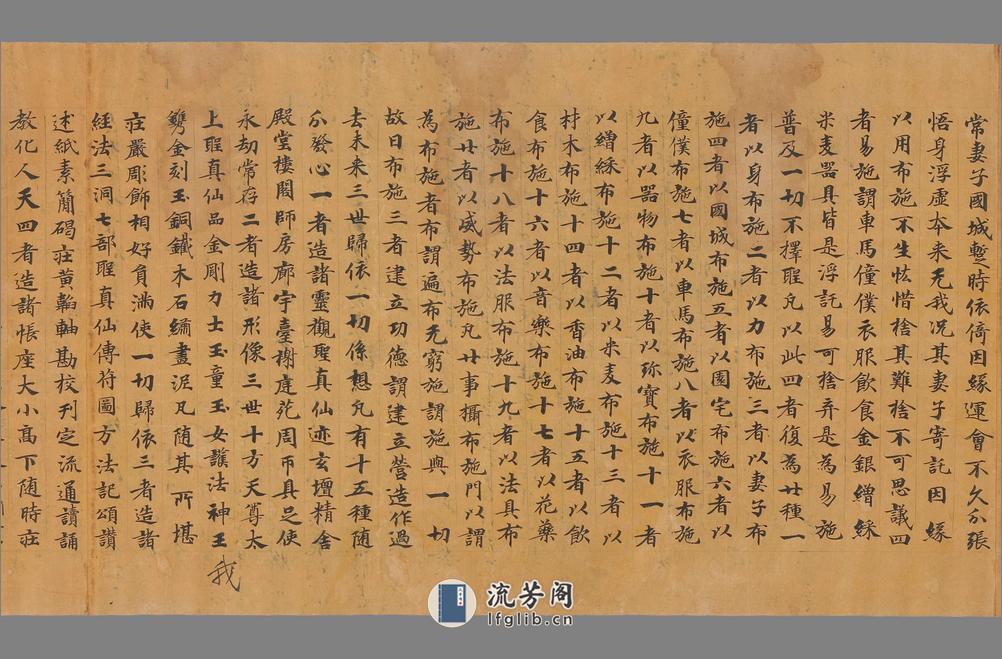 常妻子國城暫時依倚因緣運會不久分張
悟身浮虛本来无我况其妻子寄託因緣
以用布施不生怯惜捨其難捨不可思議四
者易施謂車馬僮僕衣服飲食金銀繒綵
米麦器具皆是浮託易可捨弃是為易施
普及一切不擇聖凡以此四者復為廿種一
者以身布施二者以力布施三者以妻子布
施四者以國城布施五者以園宅布施六者以
僮僕布施七者以車馬布施八者以衣服布施
九者以器物布施十者以珎寶布施十一者
以繒綵布施十二者以米麦布施十三者以
材木布施十四者以香油布施十五者以飲
食布施十六者以音樂布施十七者以花藥
布施十八者以法服布施十九者以法具布
施廿者以威勢布施凡廿事攝布施門以謂
為布施者布謂遍布无窮施謂施與一切
故曰布施三者建立功德謂建立營造作過
去未来三世歸依一切係想凡有十五種随
分發心一者造諸靈觀聖真仙迹玄壇精舍
殿堂樓閣師房廊宇臺榭㢈苑周帀具足使
永劫常存二者造諸形像三世十方天尊太
上聖真仙品金剛力士玉童玉女護法神王
鐫金刻玉銅鐵木石繡畫泥凡随其所堪
莊嚴彫飾相好負滿使一切歸依三者造諸
經法三洞七部聖真仙傳符圖方法記頌讚
述紙素簡碣莊黄軸勘校刊定流通讀誦
教化人天四者造諸帳座大小高下随時莊
我
流芳阁
lfglib.cn